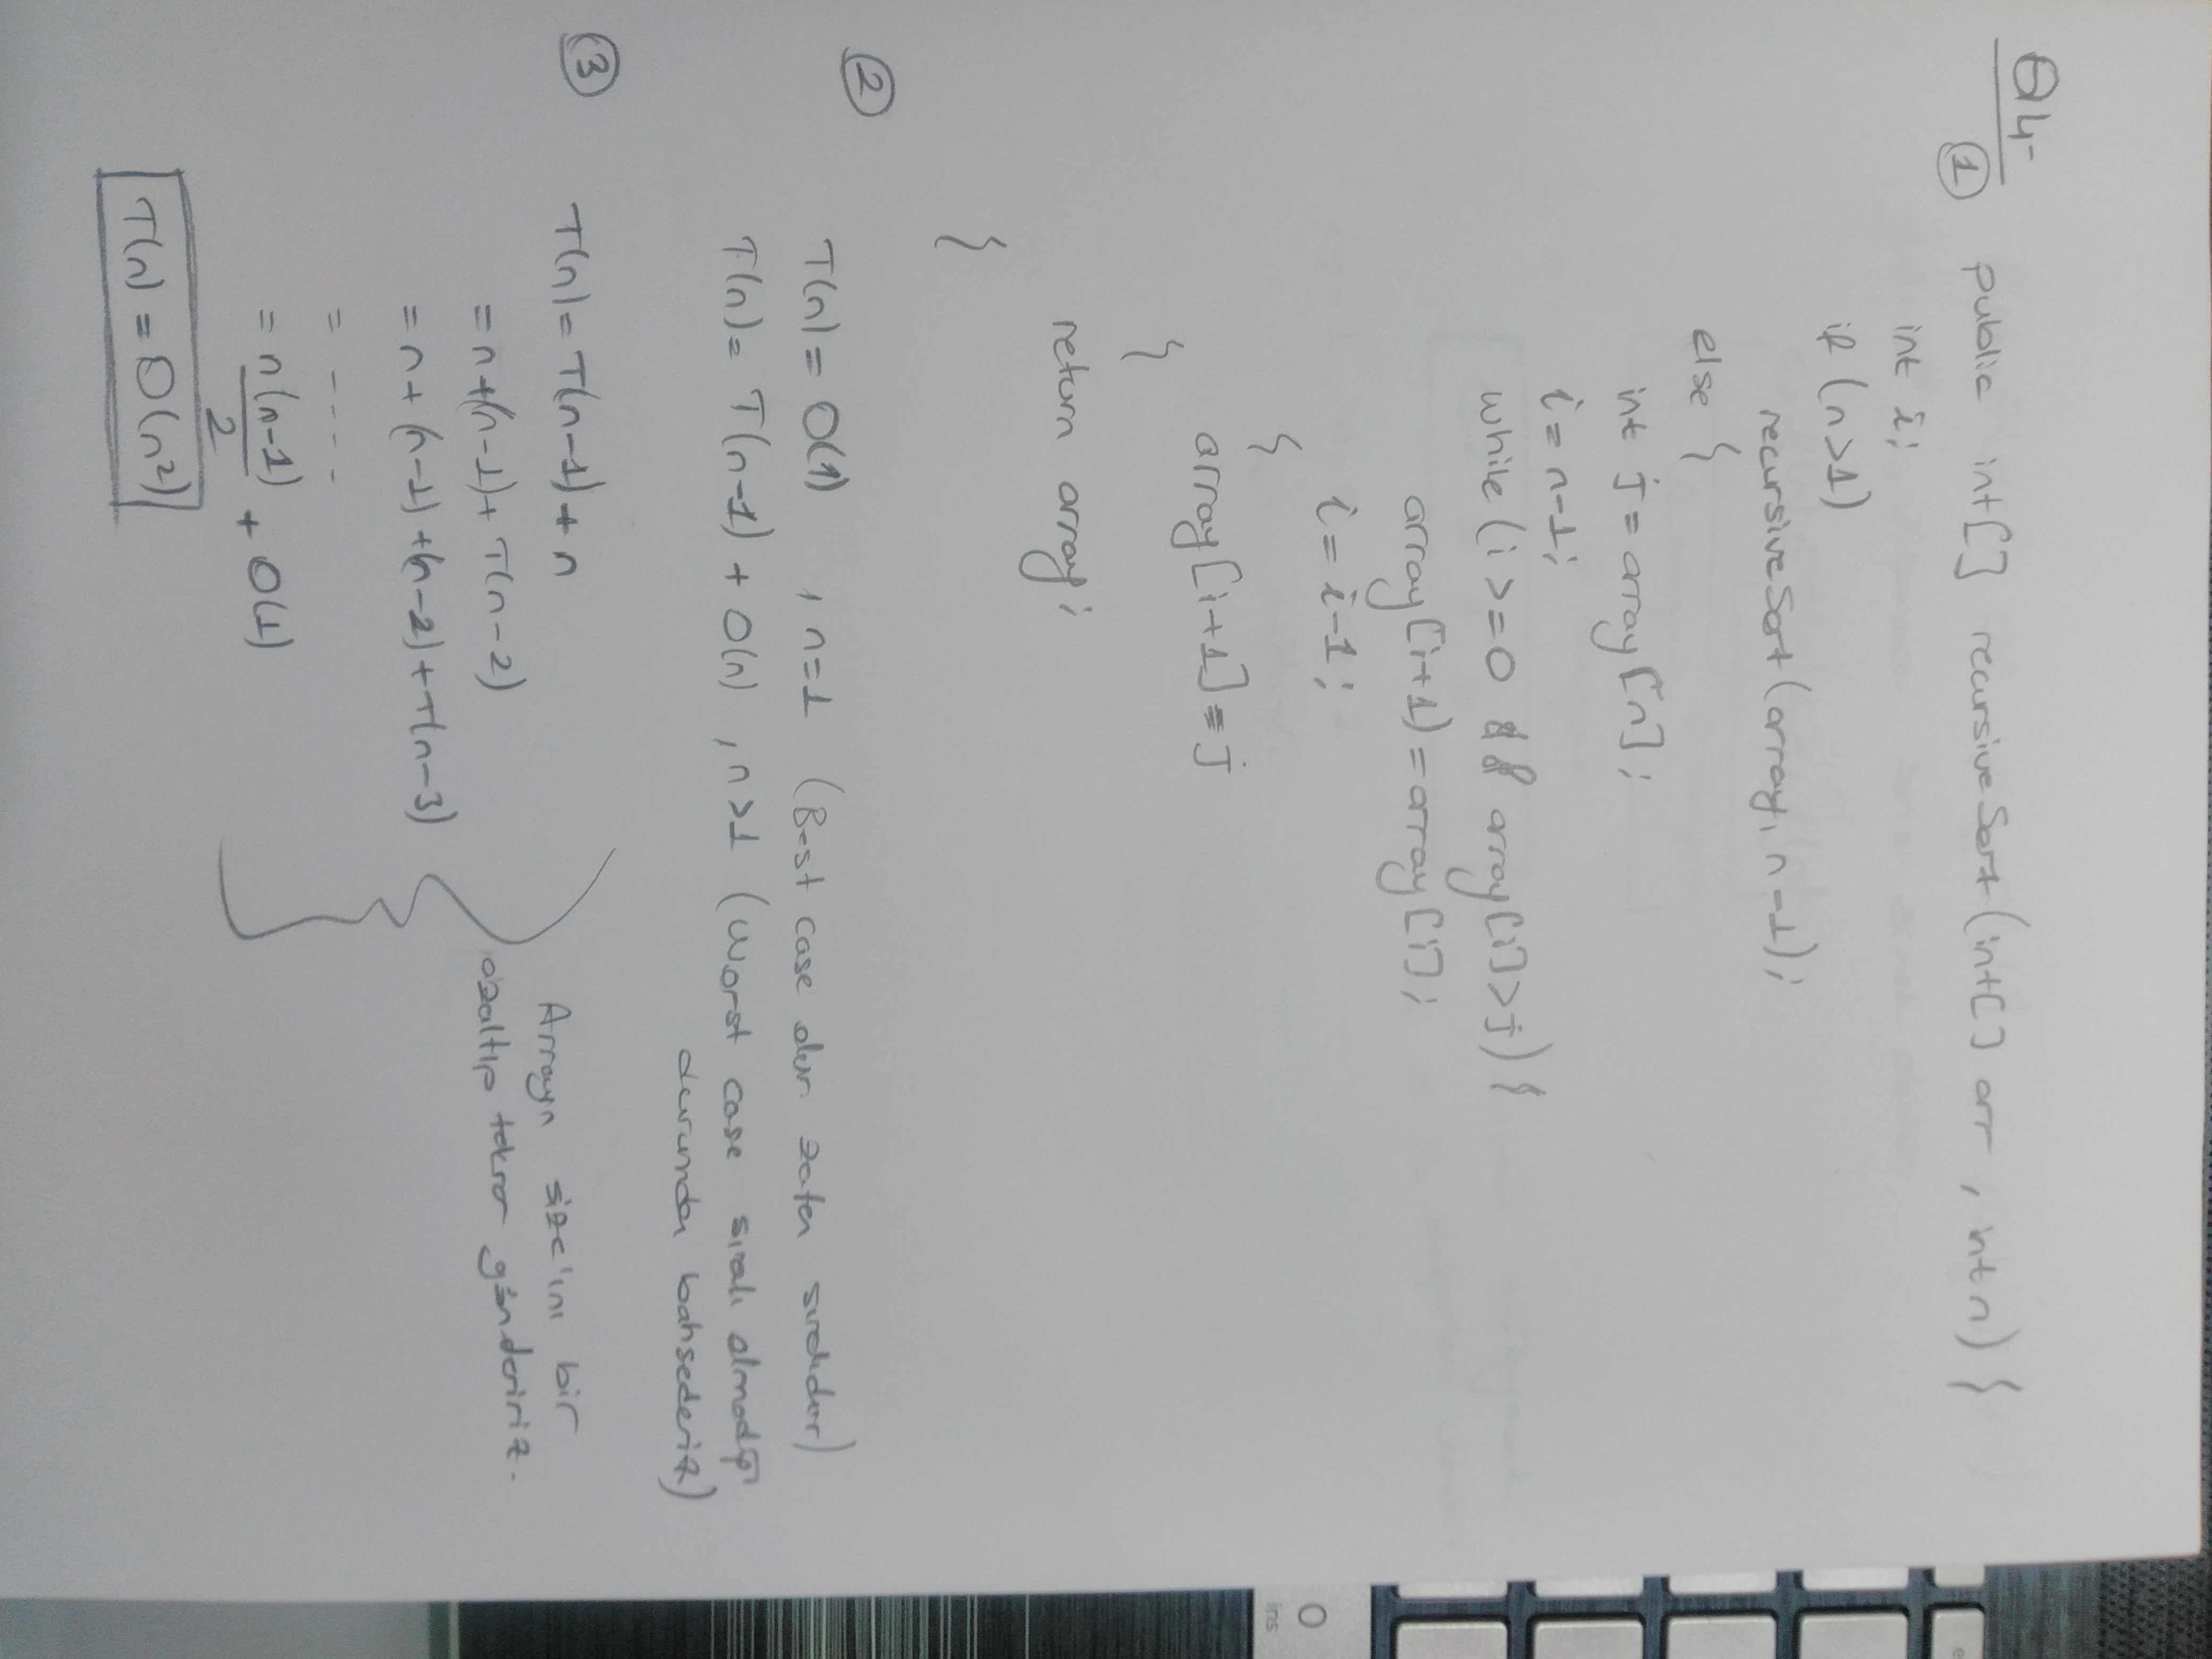 Q4-
① public int[] recursiveSort(int[] arr, int n) {
int i;
if (n>1)
recursiveSort(array, n-1);
else {
int j = array[n];
i = n-1;
while (i >= 0 && array[i] > j) {
array[i+1] = array[i];
i = i-1;
{
array[i+1] = j
}
return array;
{
②
T(n) = O(1) , n=1 (Best case olur zaten sıralıdır)
T(n) = T(n-1) + O(n) , n>1 (Worst case sıralı olmadığı
durumda bahsederiz)
③ T(n) = T(n-1) + n
= n+(n-1)+ T(n-2)
= n+ (n-1) +(n-2)+T(n-3)
= ----
= n(n-1)/2 + O(1)
T(n) = O(n²)
Arrayın size'ını bir
azaltıp tekrar göndeririz.
0
ins